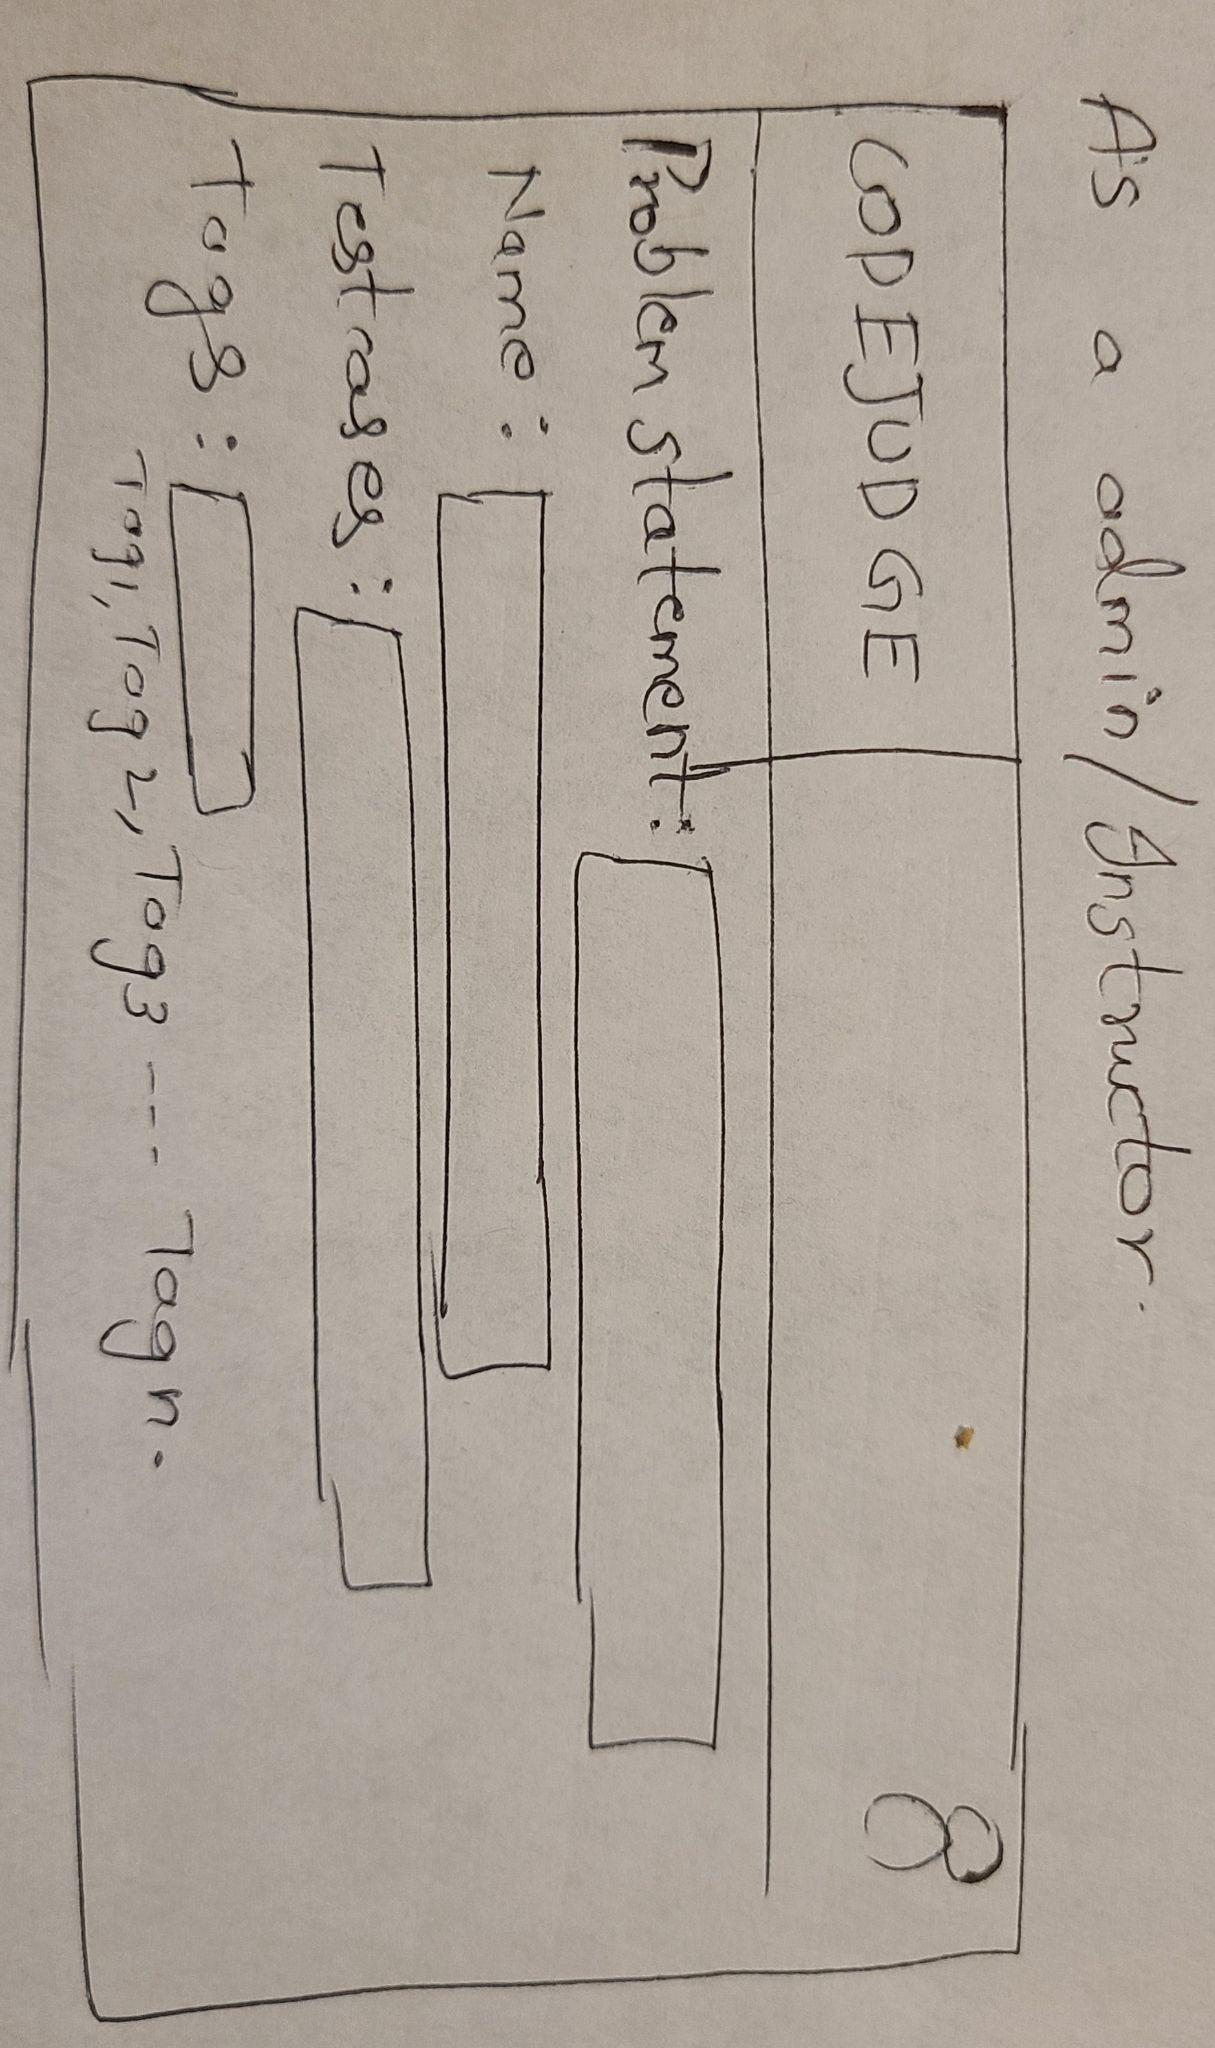 As a admin/Instructor.
CODEJUDGE
Problem statement:
Name:
Testcases:
Tags:
Tag1, Tag2, Tag3 ---- Tagn.